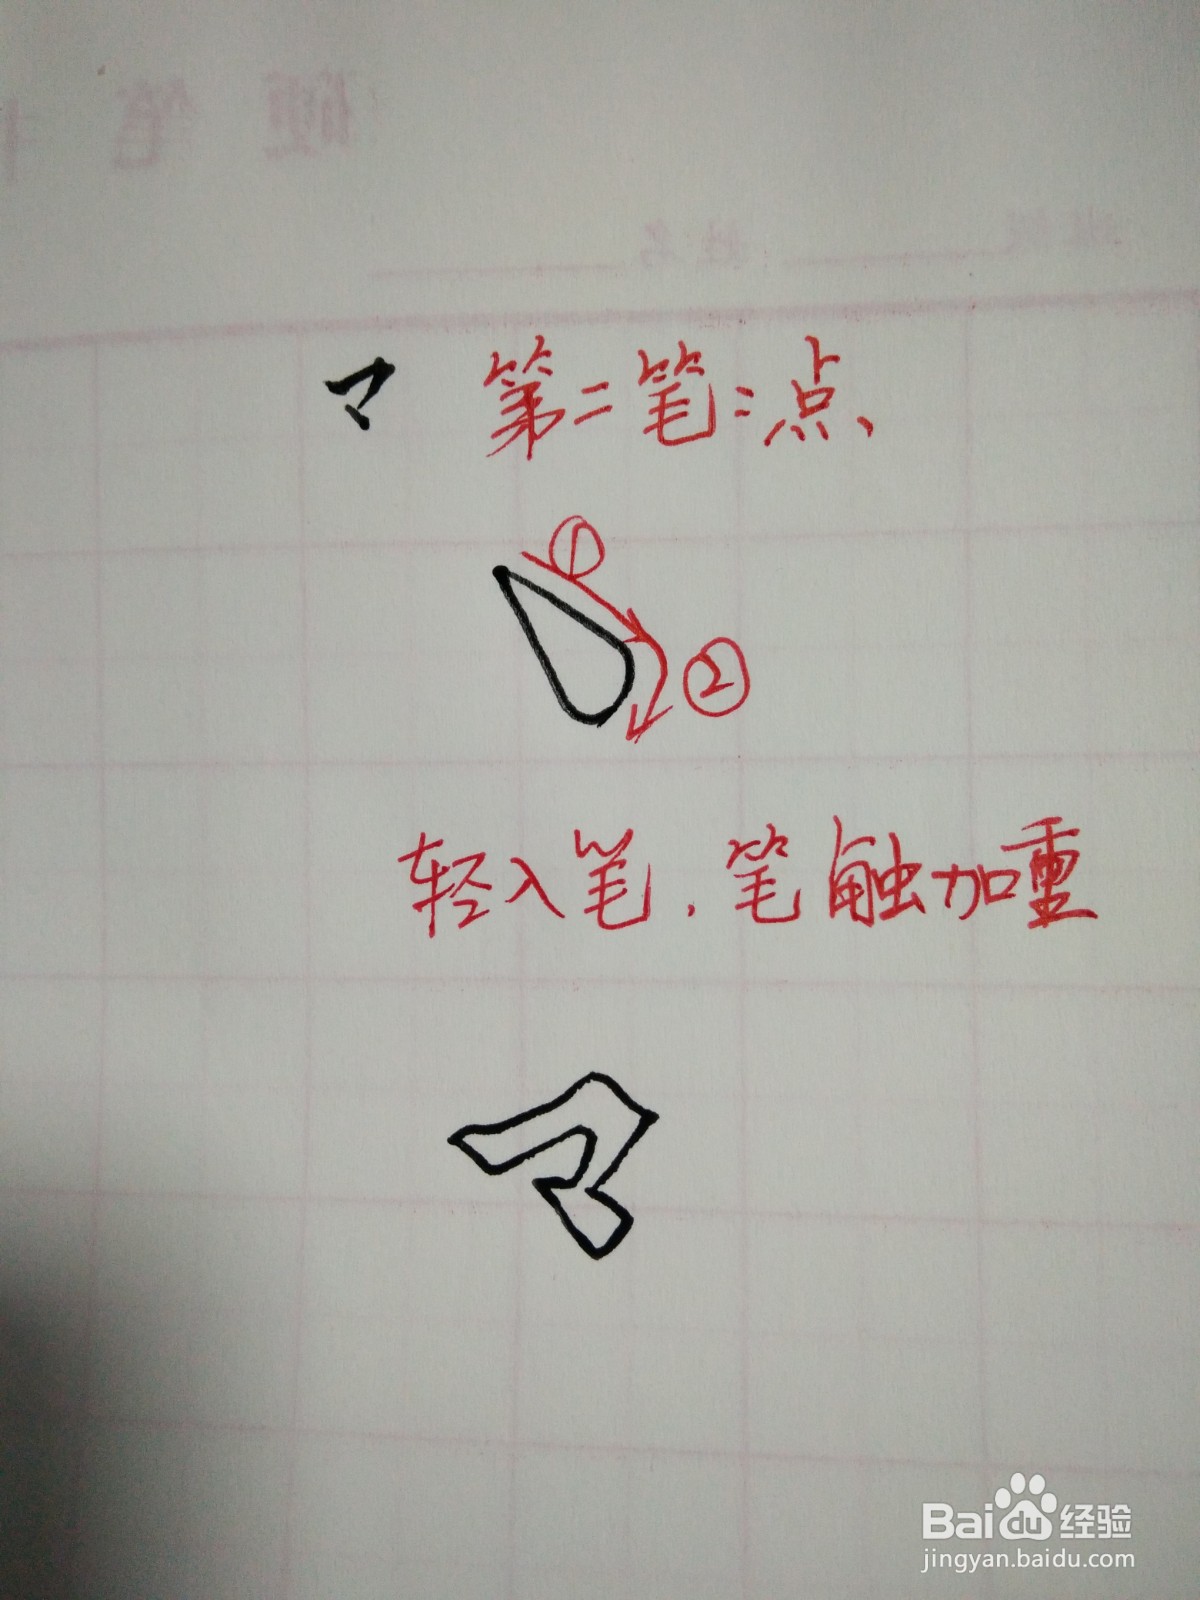 硬笔
班级 姓名
龴 第二笔:点、
①
②
轻入笔，笔触加重
Baidu 经验
jingyan.baidu.com